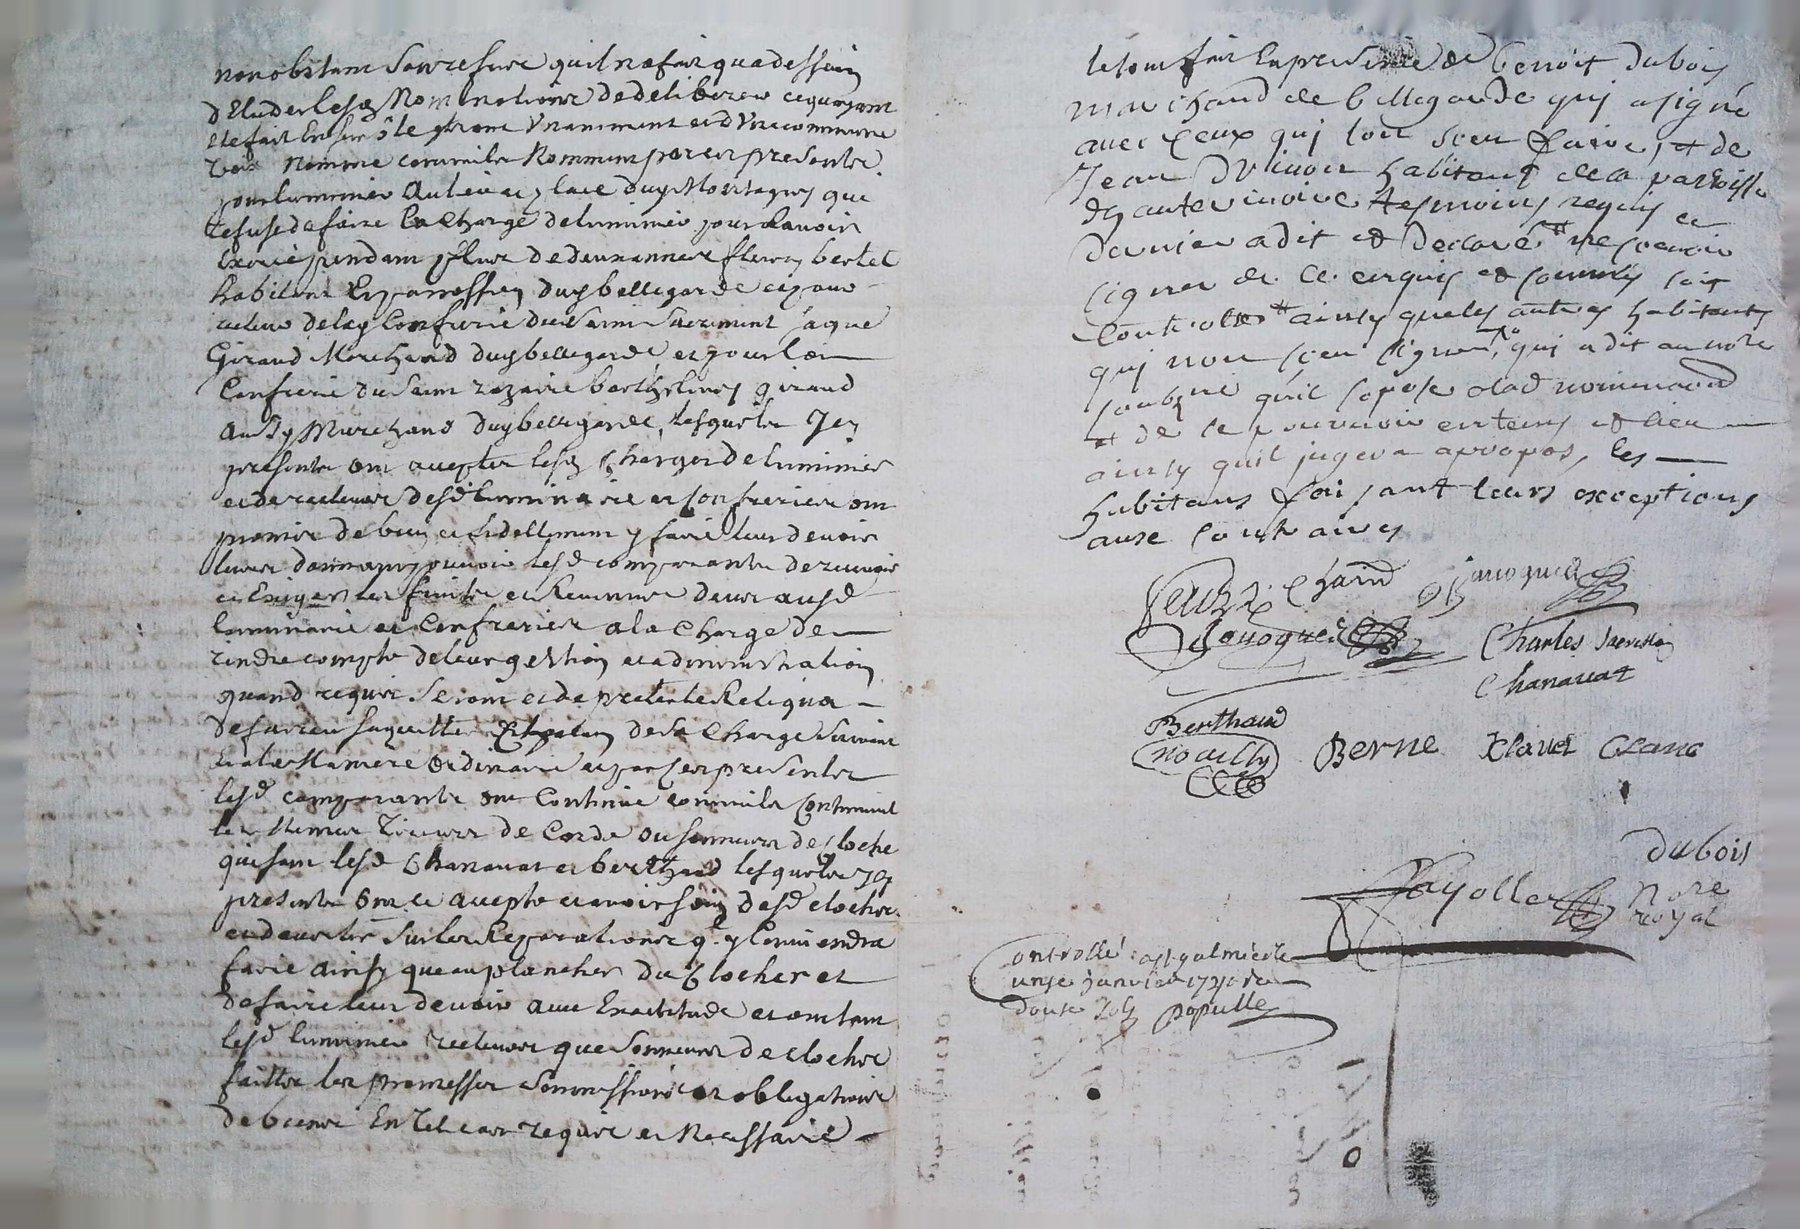 nonobstant son refus quil na fait qua dessain
d'Eluder lesd Nominations de deliberer ce quayant
ete fait Ensuite le
voix nomme comme ils Nomment par ces presentes
pour luminier au lieu et place dud Montagny qui
refuse de faire la Charge de luminier pour lavoir
Exercé pendant plus de deux années fleury bertet
habitant En parroisse dud bellegarde et pour
recteur de la Confrerie du Saint Sacrement Jaque
Giraud Marchand dud bellegarde et pour la
Confrerie du Saint rozaire barthelemy giraud
Aussy Marchand dud bellegarde, lesquels Icy
presents ont accepter lesd Charges de luminier
et de recteurs desd luminaire et Confreries ont
promis de bien et fidellement y faire leur devoir
leurs donnant pouvoir lesd comparants de recevoir
et Exiger les fruits et Revenus deub ausd
luminaire et Confreries a la Charge de
rendre compte de leur gestion et administration
quand requis Seront et de preter le Reliqua
de sa Charge Suivant
Et a la Maniere Ordinaire et par ces presentes
lesd comparants ont Continué comme ils Continuent
les Mêmes Tireurs de Corde ou sonneurs de Cloche
qui sont lesd Chanavat et berthaud lesquels Icy
presents ont ce accepte et avoir soin desd cloches
et d'avertir sur les Reparations q. y Conviendra
faire ainsy que au plancher du Clocher et
de faire leur devoir avec Exactitude et ont tant
lesd luminier recteurs que Sonneurs de cloches
faittes les promesses soumissions et obligations
de biens En tel cas requis et Necessaire
le tout fait En presence de benoit dubois
marchand de bellegarde qui a signé
avec Ceux qui lon sceu faire, et de
Jean habitant de la parroisse
temoins requis ce
dernier a dit et declaré ne scavoir
signer de ce enquis et sommés soit
Controllé ainsy que les autres habitants
qui non sceu signer, qui a dit au notre
soubzne quil sopose alad nomination
et de ce pourvoir en tems et lieu
ainsy quil jugera apropos, les
habitans faisant leurs exceptions
au contraires
Jacquet
Charles
Chanavat
Berthaud
Nouilly Berne Clavel Clanc
dubois
Fayolle Nore
royal
Controllé a St galmier le
unze janvier
douze sols Populle